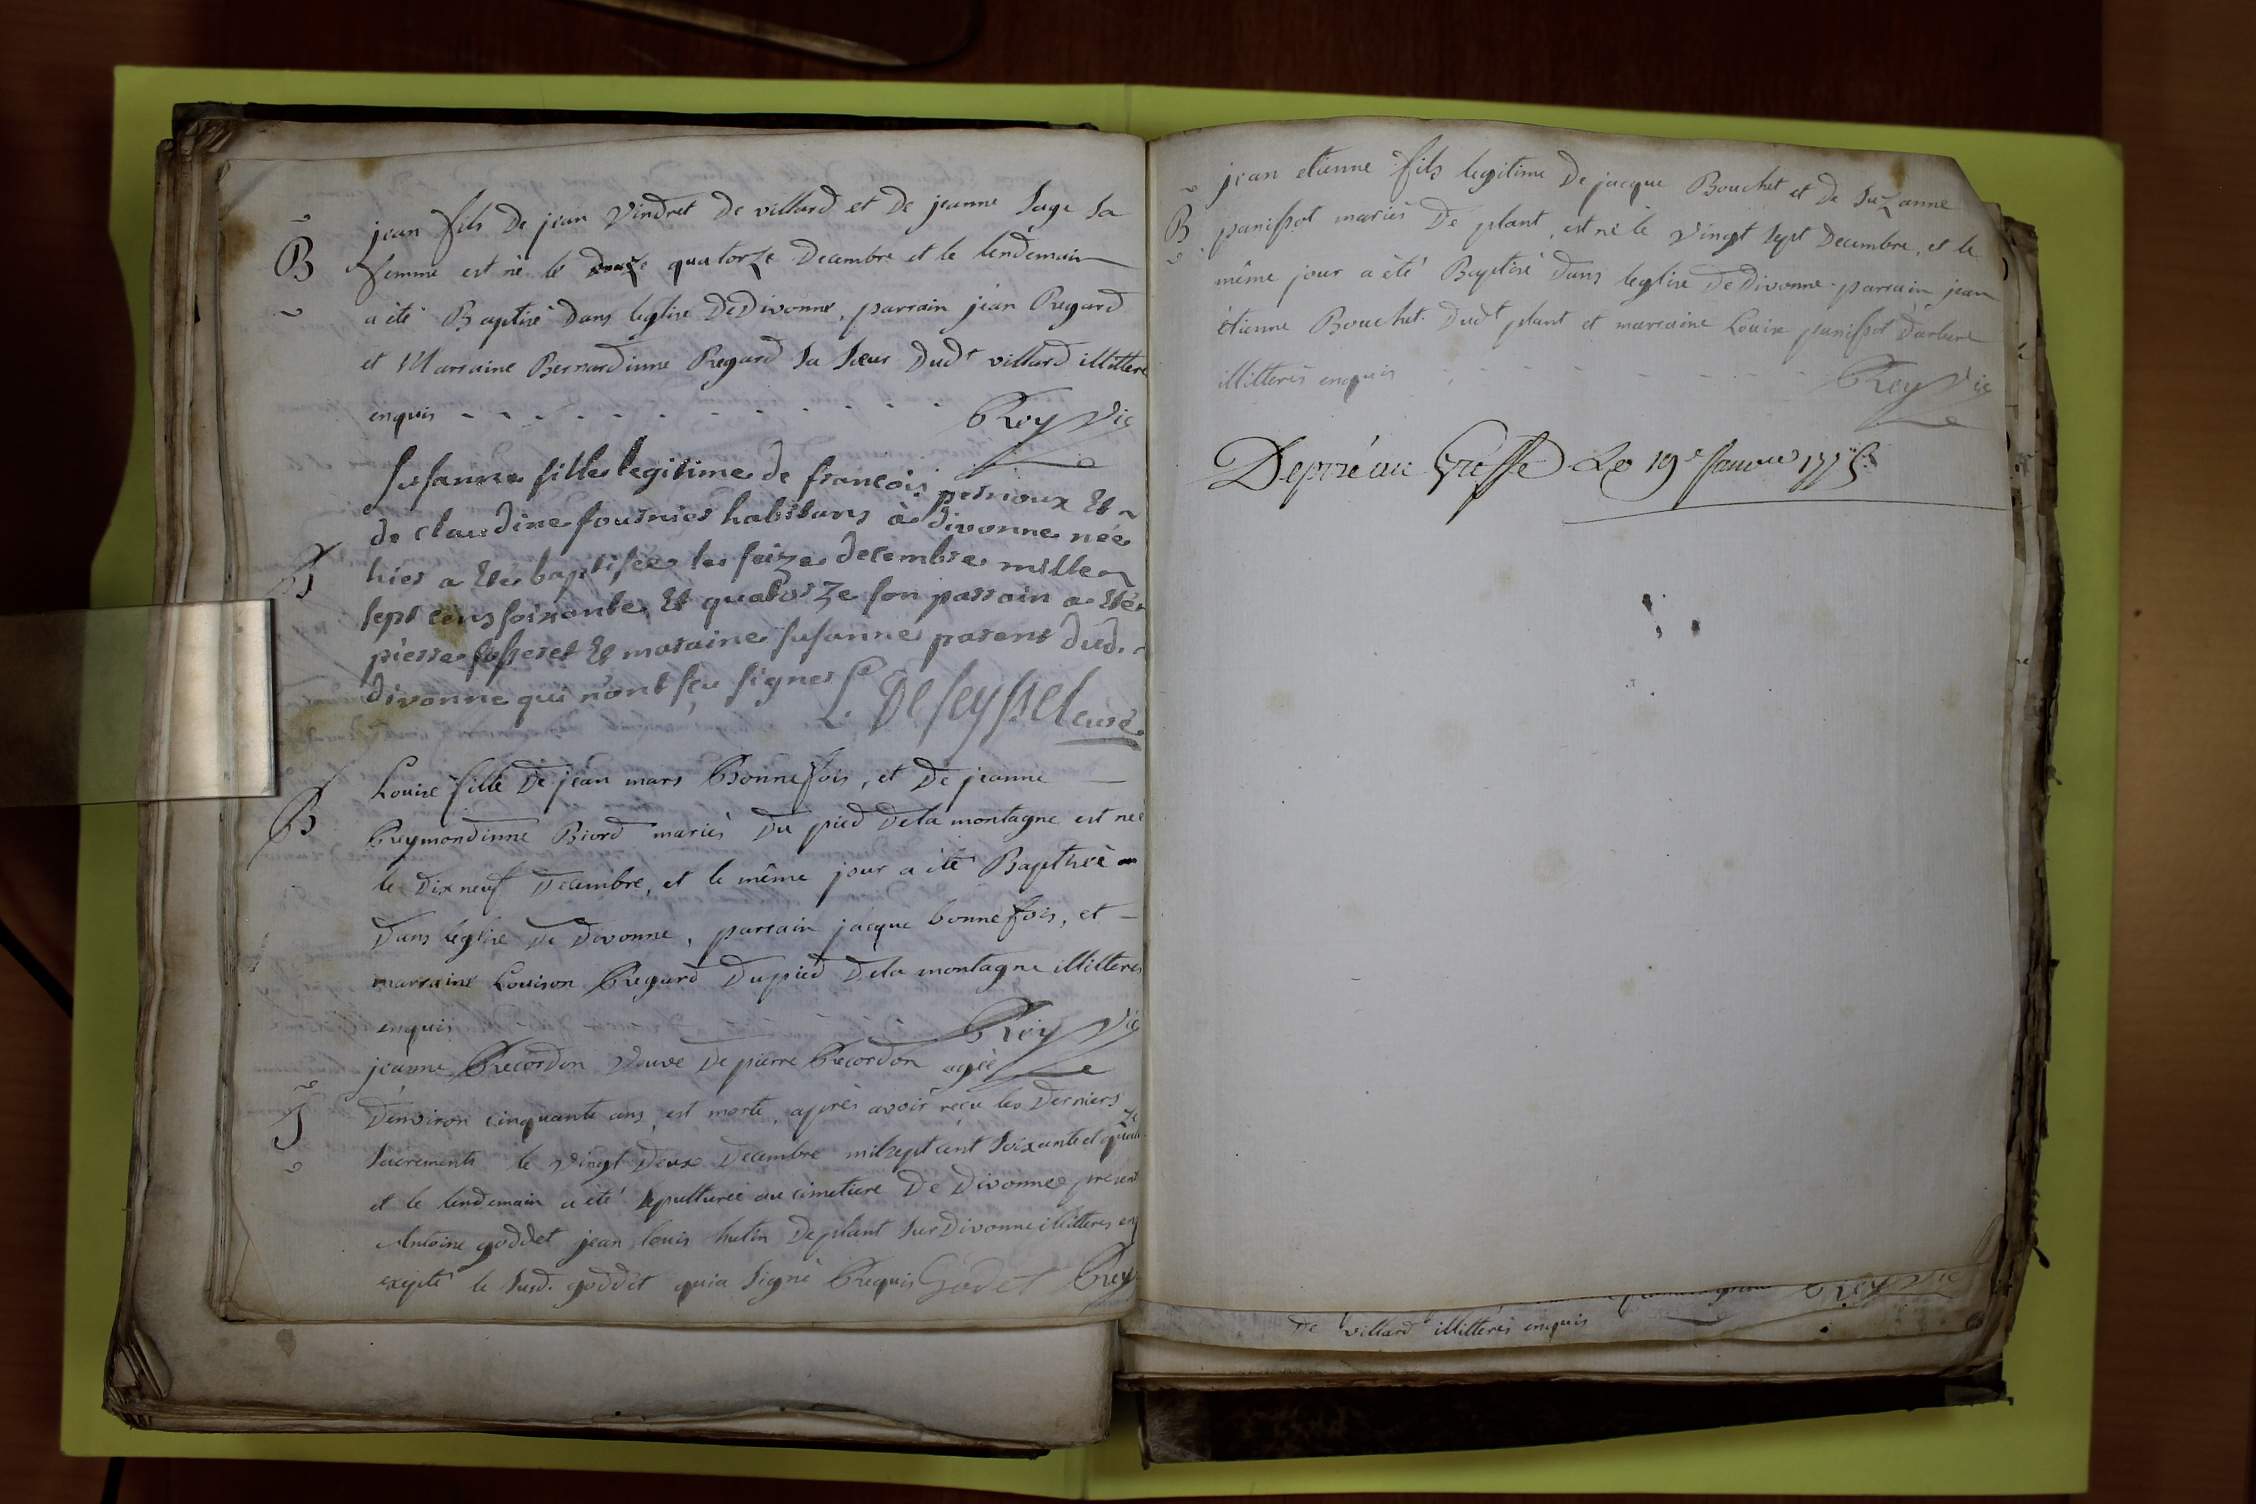 B
jean fils De jean Vindret De villard et De jeanne Sage Sa
femme est né le quatorze Decembre et le lendemain
a été Baptisé Dans leglise DeDivonne, parrain jean Regard
et Marraine Bernardinne Regard Sa Sœur Dudt villard illitteré
enquis Rey Vic
B
Susanne fille legitime de francois perrioux et
de claudine fournier habitans à divonne née
hier a ete baptisée le seize decembre mille
sept cens soixante et quatorze son parrain a été
pierre fosseret et maraine susanne parent dud.
divonne qui n'ont sçu signer
L. De Seyssel curé
B
Louise fille De jean marc Bonnefois, et De jeanne
Reymondinne Biord mariés Du pied Dela montagne est née
le Dix neuf Decembre, et le même jour a été Baptiseé
Dans leglise De Divonne, parrain jacque bonnefois, et
marraine Louison Regard Dupied Dela montagne illitterés
enquis Rey Vic
S
jeanne Recordon Veuve De pierre Recordon agée
D'environ cinquante ans, est morte, après avoir reçu les Derniers
Sacrements le vingt Deux Decembre milsept cent Soixante et quatorze
et le lendemain a été Sepulturée au cimetiere De Divonne present
Antoine goddet jean louis hutin De plant Sur Divonne illitteres enq
exepté le Susd. goddet qui a Signé Requis Godet Rey
B
jean etienne fils legitime De jacque Bouchet et De Suzanne
panissot mariés De plant, est né le Vingt Sept Decembre, et le
même jour a été Baptisé Dans leglise De Divonne parrain jean
étienne Bouchet Dudt plant et marraine Louise panissot Darbere
illitterés enquis Rey Vic
Deposé au Greffe Le 19e Janvier 1775
Rey Vic
De villard illitterés enquis